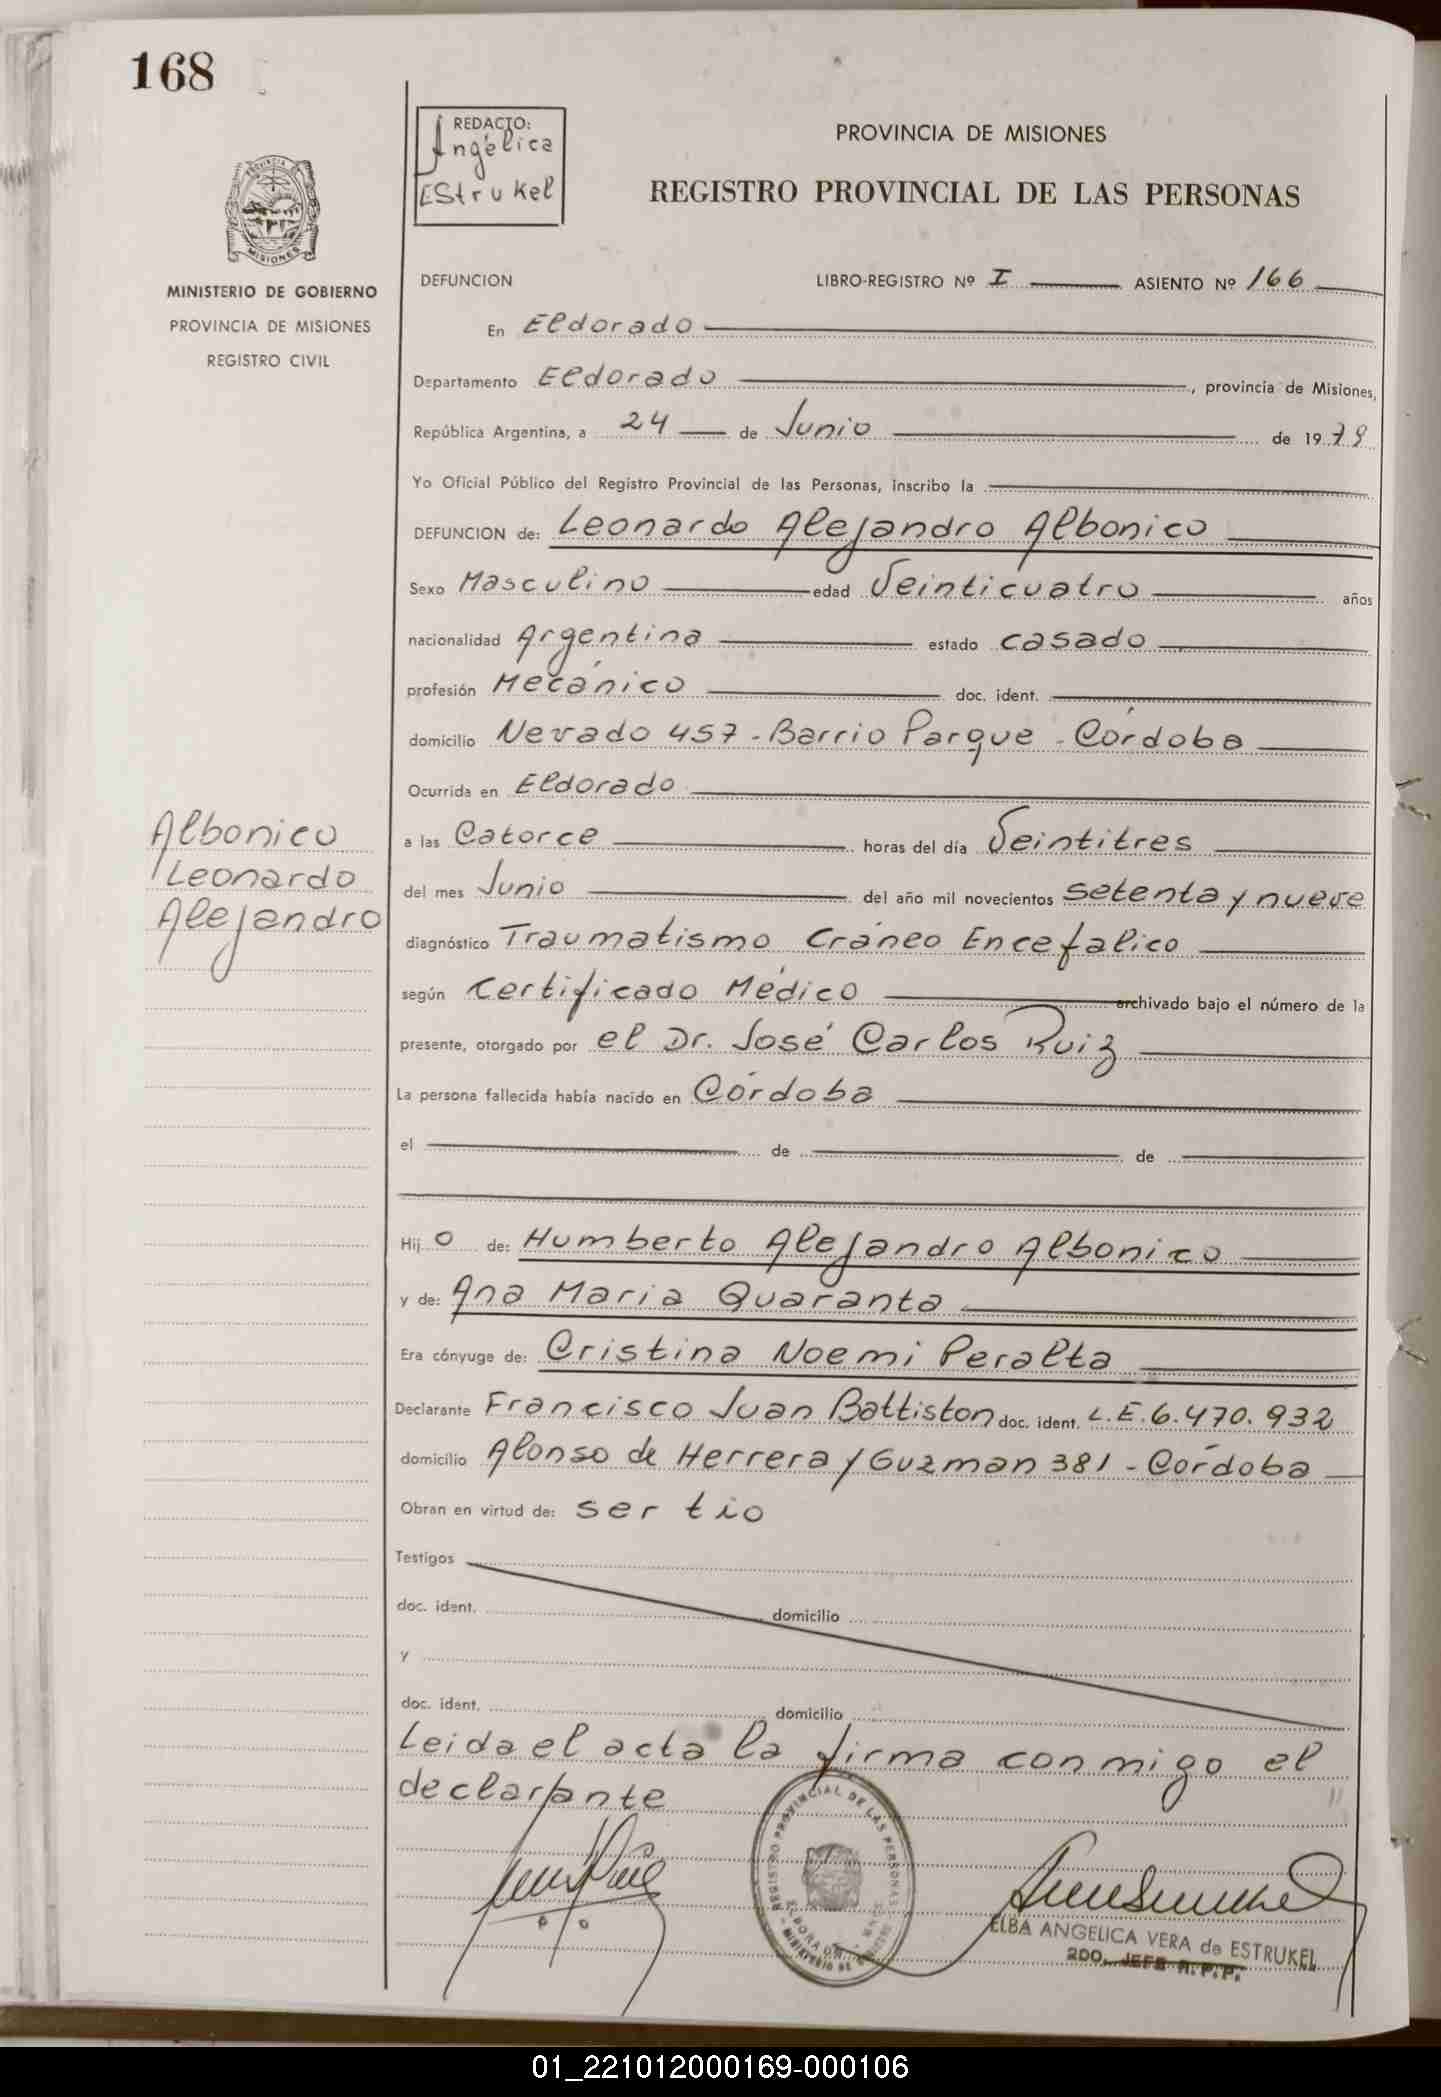 168
REDACTO:
Angélica
EStrukel
PROVINCIA DE MISIONES
REGISTRO PROVINCIAL DE LAS PERSONAS
PROVINCIA
MISIONES
MINISTERIO DE GOBIERNO
PROVINCIA DE MISIONES
REGISTRO CIVIL
DEFUNCION LIBRO-REGISTRO Nº I ASIENTO Nº 166
En Eldorado
Departamento Eldorado, provincia de Misiones,
República Argentina, a 24 de Junio de 1979
Yo Oficial Público del Registro Provincial de las Personas, inscribo la
DEFUNCION de: Leonardo Alejandro Albonico
Sexo Masculino edad Veinticuatro años
nacionalidad Argentina estado casado
profesión Mecánico doc. ident.
domicilio Nevado 457-Barrio Parque-Córdoba
Ocurrida en Eldorado
a las Catorce horas del día Veintitres
del mes Junio del año mil novecientos setenta y nueve
diagnóstico Traumatismo Cráneo Encefalico
según Certificado Médico archivado bajo el número de la
presente, otorgado por el Dr. José Carlos Ruiz
La persona fallecida había nacido en Córdoba
el de de
Albonico
Leonardo
Alejandro
Hijo de: Humberto Alejandro Albonico
y de: Ana Maria Quaranta
Era cónyuge de: Cristina Noemi Peralta
Declarante Francisco Juan Battiston doc. ident. L.E.6.470.932
domicilio Alonso de Herrera y Guzman 381-Córdoba
Obran en virtud de: ser tio
Testigos
doc. ident. domicilio
y
doc. ident. domicilio
Leida el acta la firma conmigo el
declarante
REGISTRO PROVINCIAL DE LAS PERSONAS
ELDORADO
MINISTERIO DE GOBIERNO
ELBA ANGELICA VERA de ESTRUKEL
2DO. JEFE R.P.P.
01_221012000169-000106